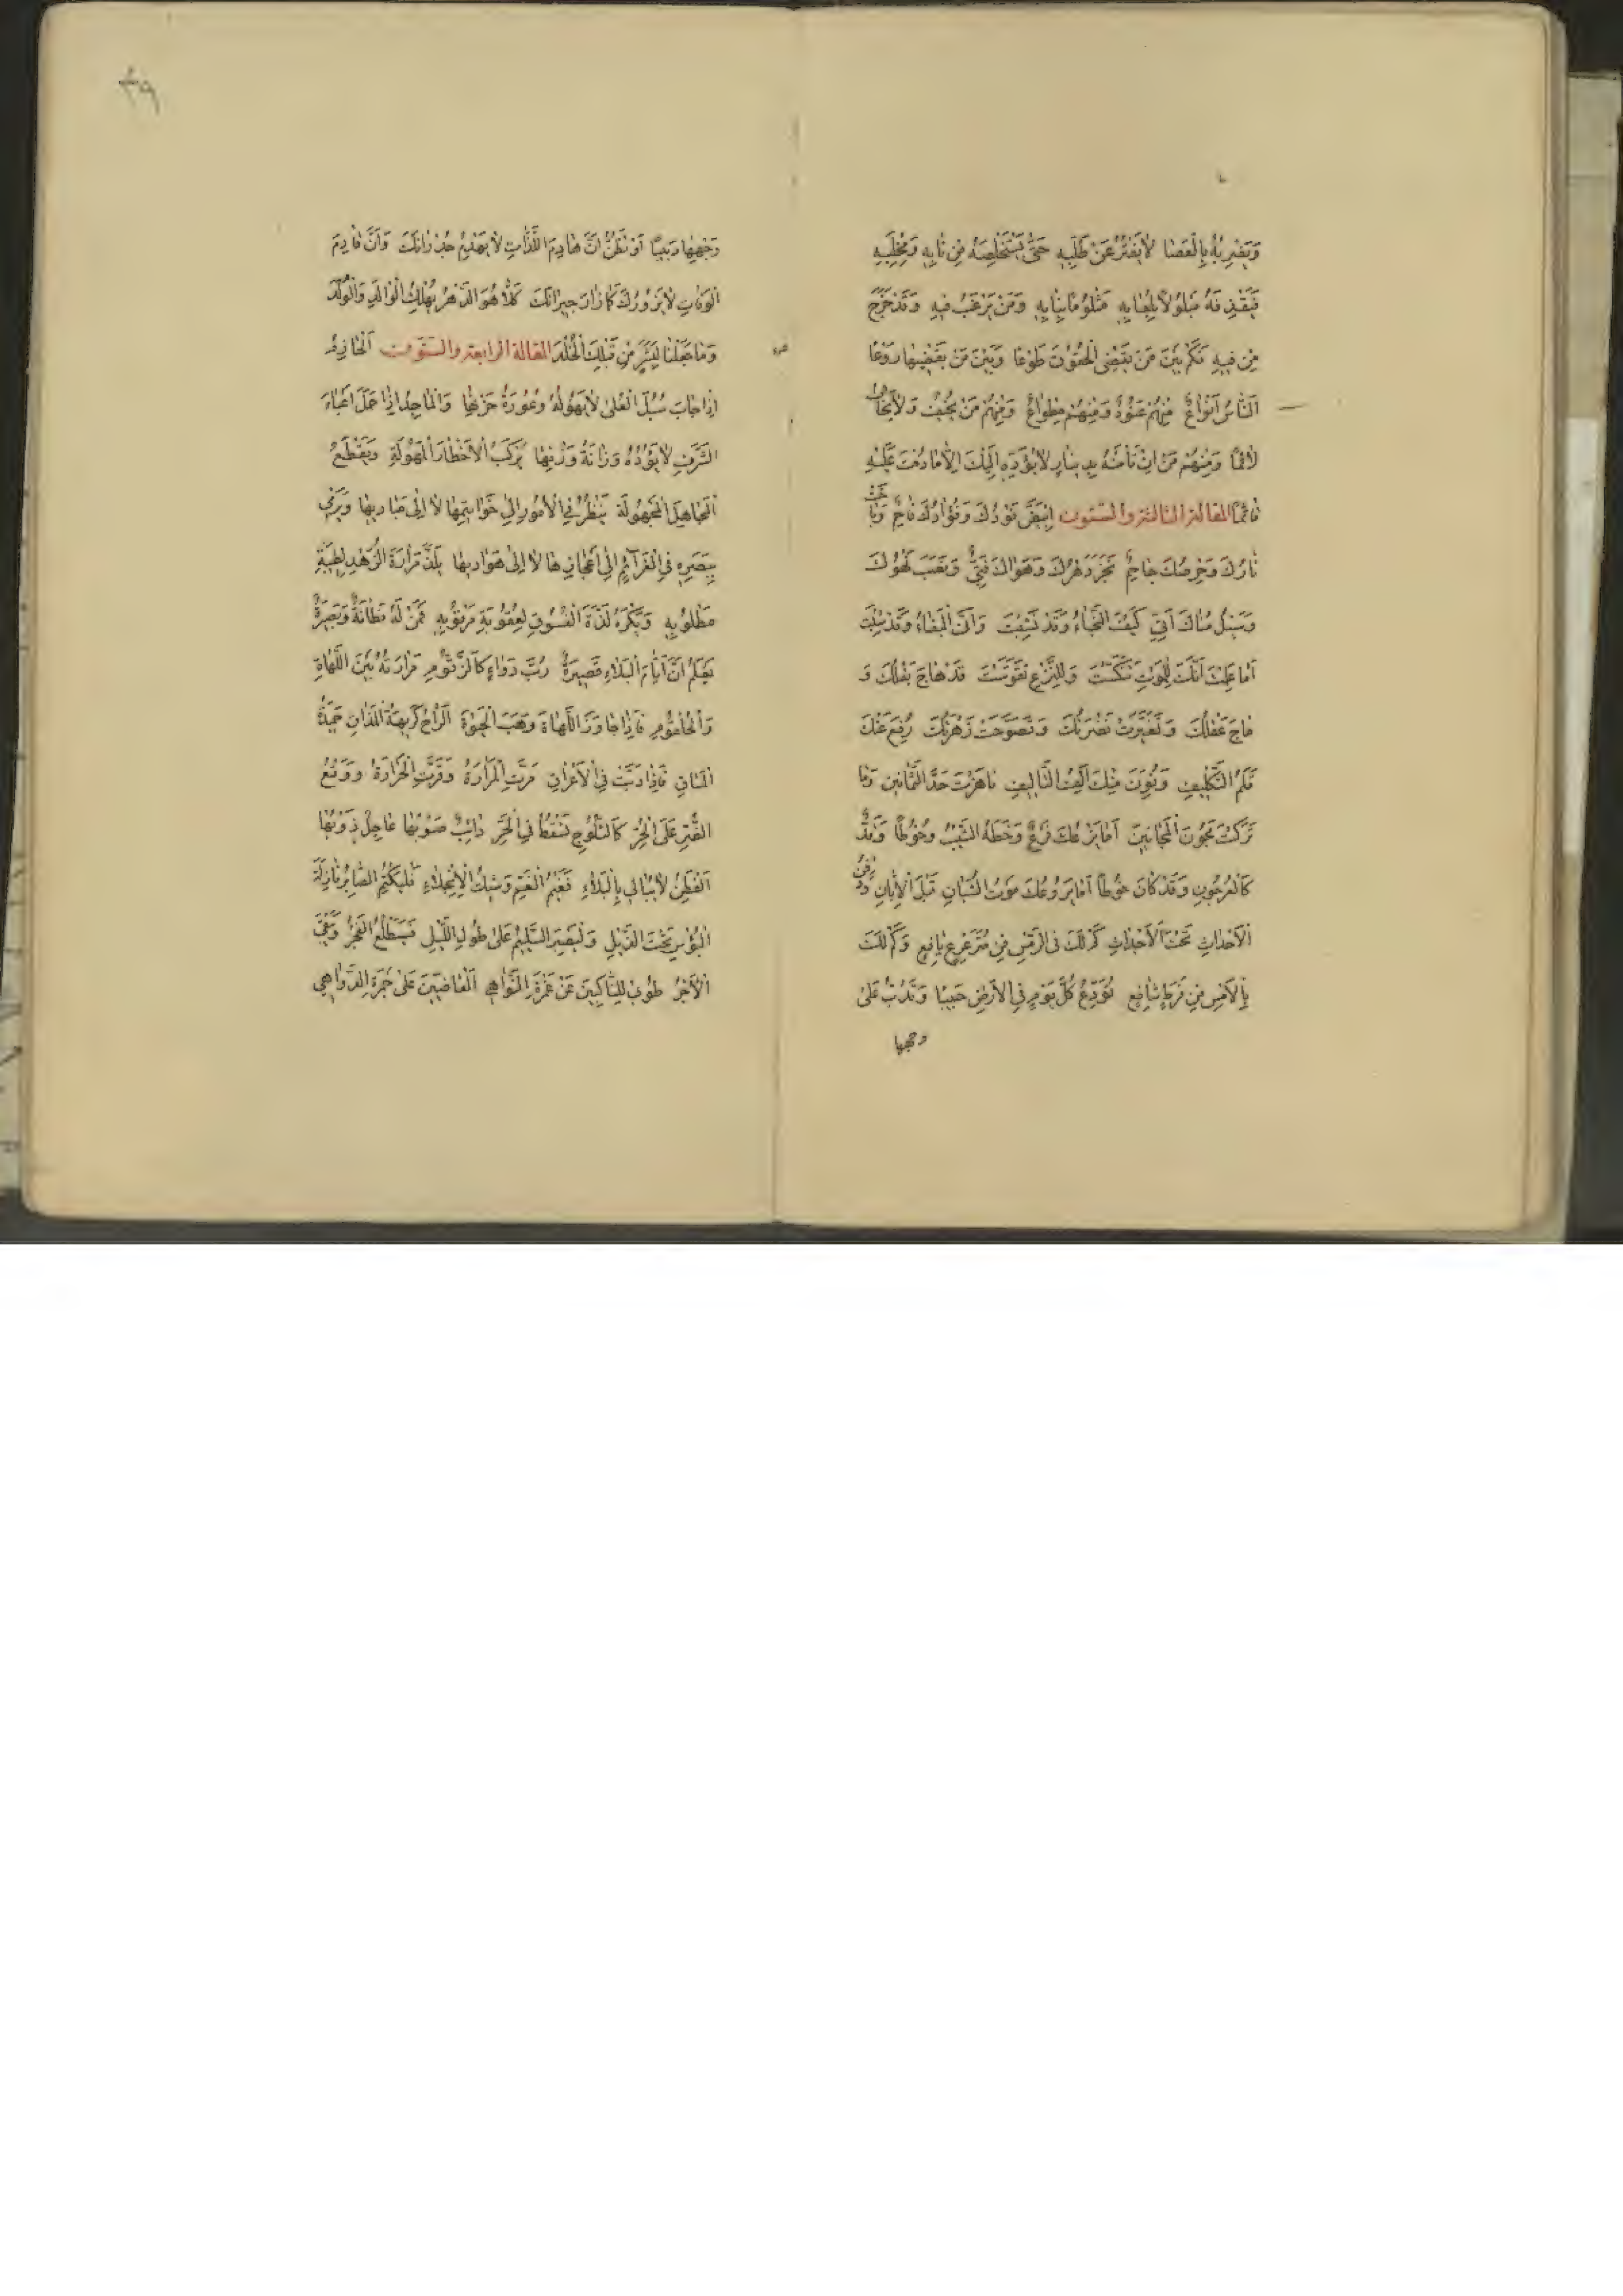 وَيَضْرِبُهُ بِالْعَصَا لَا يَفْتُرُ عَنْ طَلَبِهِ حَتّٰى يَسْتَخْلِصَهُ مِنْ نَابِهِ وَمِخْلَبِهِ
فَيَقْذِفَهُ مَبْلُولًا بِلُعَابِهِ مَثْلُومًا بِنَابِهِ وَمَنْ يَرْغَبُ فِيهِ وَقَدْ خَرَجَ
مِنْ فِيهِ فَكَمْ بَيْنَ مَنْ يَقْضِى الْحُقُوقَ طَوْعًا وَبَيْنَ مَنْ يَقْضِيهَا رَوْعًا
اَلنَّاسُ اَنْوَاعٌ مِنْهُمْ عَنُودٌ وَمِنْهُمْ مِطْوَاعٌ وَمِنْهُمْ مَنْ يُجِيفُ وَلَا يَخَافُ
لَائِمًا وَمِنْهُمْ مَنْ اِنْ تَأْمَنْهُ بِدِينَارٍ لَا يُؤَدِّهِ اِلَيْكَ اِلَّا مَا دُمْتَ عَلَيْهِ
قَائِمًا المقالة الثالثة والستون اِبْيَضَّ فَوْدُكَ وَفُؤَادُكَ فَاحِمٌ وَبَاخَتْ
نَارُكَ وَحِرْصُكَ جَاحِمٌ عَجَزَ دَهْرُكَ وَهَوَاكَ فَتِيٌّ وَنَضَبَ نَهْرُكَ
وَسَيْلُ مُنَاكَ اَتِيٌّ كَيْفَ النَّجَاءُ وَقَدْ نَشِبْتَ وَاَنّٰى الْبَقَاءُ وَقَدْ شِبْتَ
اَمَا عَلِمْتَ اَنَّكَ لِلْمَوْتِ تَنَكَّسْتَ وَلِلنَّزْعِ تَقَوَّسْتَ قَدْ هَاجَ بَقْلُكَ وَ
مَاجَ عَقْلُكَ وَتَغَيَّرَتْ نَضْرَتُكَ وَتَصَوَّحَتْ زَهْرَتُكَ رُفِعَ عَنْكَ
قَلَمُ التَّكْلِيفِ وَنُوِّنَ مِنْكَ اَلِفُ التَّأْلِيفِ نَاهَزْتَ حَدَّ الثَّمَانِينَ وَمَا
تَرَكْتَ مُجُونَ الْمَجَانِينِ اَمَا يَزَعُكَ فَرْعٌ وَخَطَهُ الشَّيْبُ وُخُوطًا وَقَدٌّ
كَالْعُرْجُونِ وَقَدْ كَانَ خُوطًا اَمَا يَرُوعُكَ مَوْتُ الشُّبَّانِ قَبْلَ الْاِبَّانِ وَدَفْنُ
الْاَحْدَاثِ تَحْتَ الْاَجْدَاثِ كَمْ لَكَ فِى الرَّمْسِ مِنْ مُتَرَعْرِعٍ يَافِعٍ وَكَمْ لَكَ
بِالْاَمْسِ مِنْ فَرَطٍ شَافِعٍ تُوَدِّعُ كُلَّ يَوْمٍ فِى الْاَرْضِ حَبِيبًا وَتَدُبُّ عَلٰى
وجهها
٣٩
وَجْهِهَا دَبِيبًا اَوْ تَظُنُّ اَنَّ هَادِمَ اللَّذَّاتِ لَا يَهْدِمُ جُدْرَانَكَ وَاَنَّ قَادِمَ
الْوَفَاتِ لَا يَزُورُكَ كَمَا زَارَ جِيرَانَكَ كَلَّا هُوَ الدَّهْرُ يُهْلِكُ الْوَالِدَ وَالْوَلَدَ
وَمَا جَعَلْنَا لِبَشَرٍ مِنْ قَبْلِكَ الْخُلْدَ المقالة الرابعة والستون اَلْحَازِمُ
اِذَا جَابَ سُبُلَ الْعُلٰى لَا يَهُولُهُ وُعُورَةُ حَزْنِهَا وَالْمَاجِدُ اِذَا حَمَلَ اَعْبَاءَ
الشَّرَفِ لَا يَؤُدُهُ رَزَانَةُ وَزْنِهَا يَرْكَبُ الْاَخْطَارَ الْمَهُولَةَ وَيَقْطَعُ
الْمَجَاهِلَ الْمَجْهُولَةَ يَنْظُرُ فِى الْاُمُورِ اِلٰى خَوَاتِيمِهَا لَا اِلٰى مَبَادِيهَا وَيَرْمِى
بِبَصَرِهِ فِى الْغَرَائِمِ اِلٰى اَعْجَازِهَا لَا اِلٰى هَوَادِيهَا يَلَذُّ مَرَارَةَ الزُّهْدِ لِطِيبَةِ
مَطْلُوبِهِ وَيَكْرَهُ لَذَّةَ الْفُسُوقِ لِعُقُوبَةِ مَرْقُوبِهِ فَمَنْ لَهُ فَطَانَةٌ وَبَصِيرَةٌ
يَعْلَمُ اَنَّ اَيَّامَ الْبَلَاءِ قَصِيرَةٌ رُبَّ دَوَاءٍ كَالزَّقُّومِ مَرَارَتُهُ بَيْنَ اللَّهَاةِ
وَالْحُلْقُومِ فَاِذَا جَاوَزَ اللَّهَاةَ وَهَبَ الْحَيٰوةَ اَلرَّاحُ كَرِيهَةُ الْمَذَاقِ حَمِيدَةُ
الْمَسَاقِ فَاِذَا دَبَّتْ فِى الْاَعْرَاقِ مَرَّتِ الْمَرَارَةُ وَقَرَّتِ الْحَرَارَةُ وَوَقْعُ
الضُّرِّ عَلَى الْحُرِّ كَالثُّلُوجِ تَسْقُطُ فِى الْحَرِّ دَائِبٌ صَوْبُهَا عَاجِلٌ ذَوْبُهَا
اَلْفَطِنُ لَا يُبَالِى بِالْبَلَاءِ فَغَيْمُ الْغَمِّ وَشِيكُ الْاِنْجِلَاءِ فَلْيَكْتُمِ الصَّابِرُ نَازِلَةَ
الْبُؤْسِ تَحْتَ الذَّيْلِ وَلْيَصْبِرِ السَّلِيمُ عَلٰى طُولِ اللَّيْلِ فَسَيَطْلُعُ الْفَجْرُ وَيَبْقَى
الْاَجْرُ طُوبٰى لِلنَّاكِبِينَ عَنْ غَمْرَةِ النَّوَاهِى اَلْقَابِضِينَ عَلٰى جَمْرَةِ الدَّوَاهِى